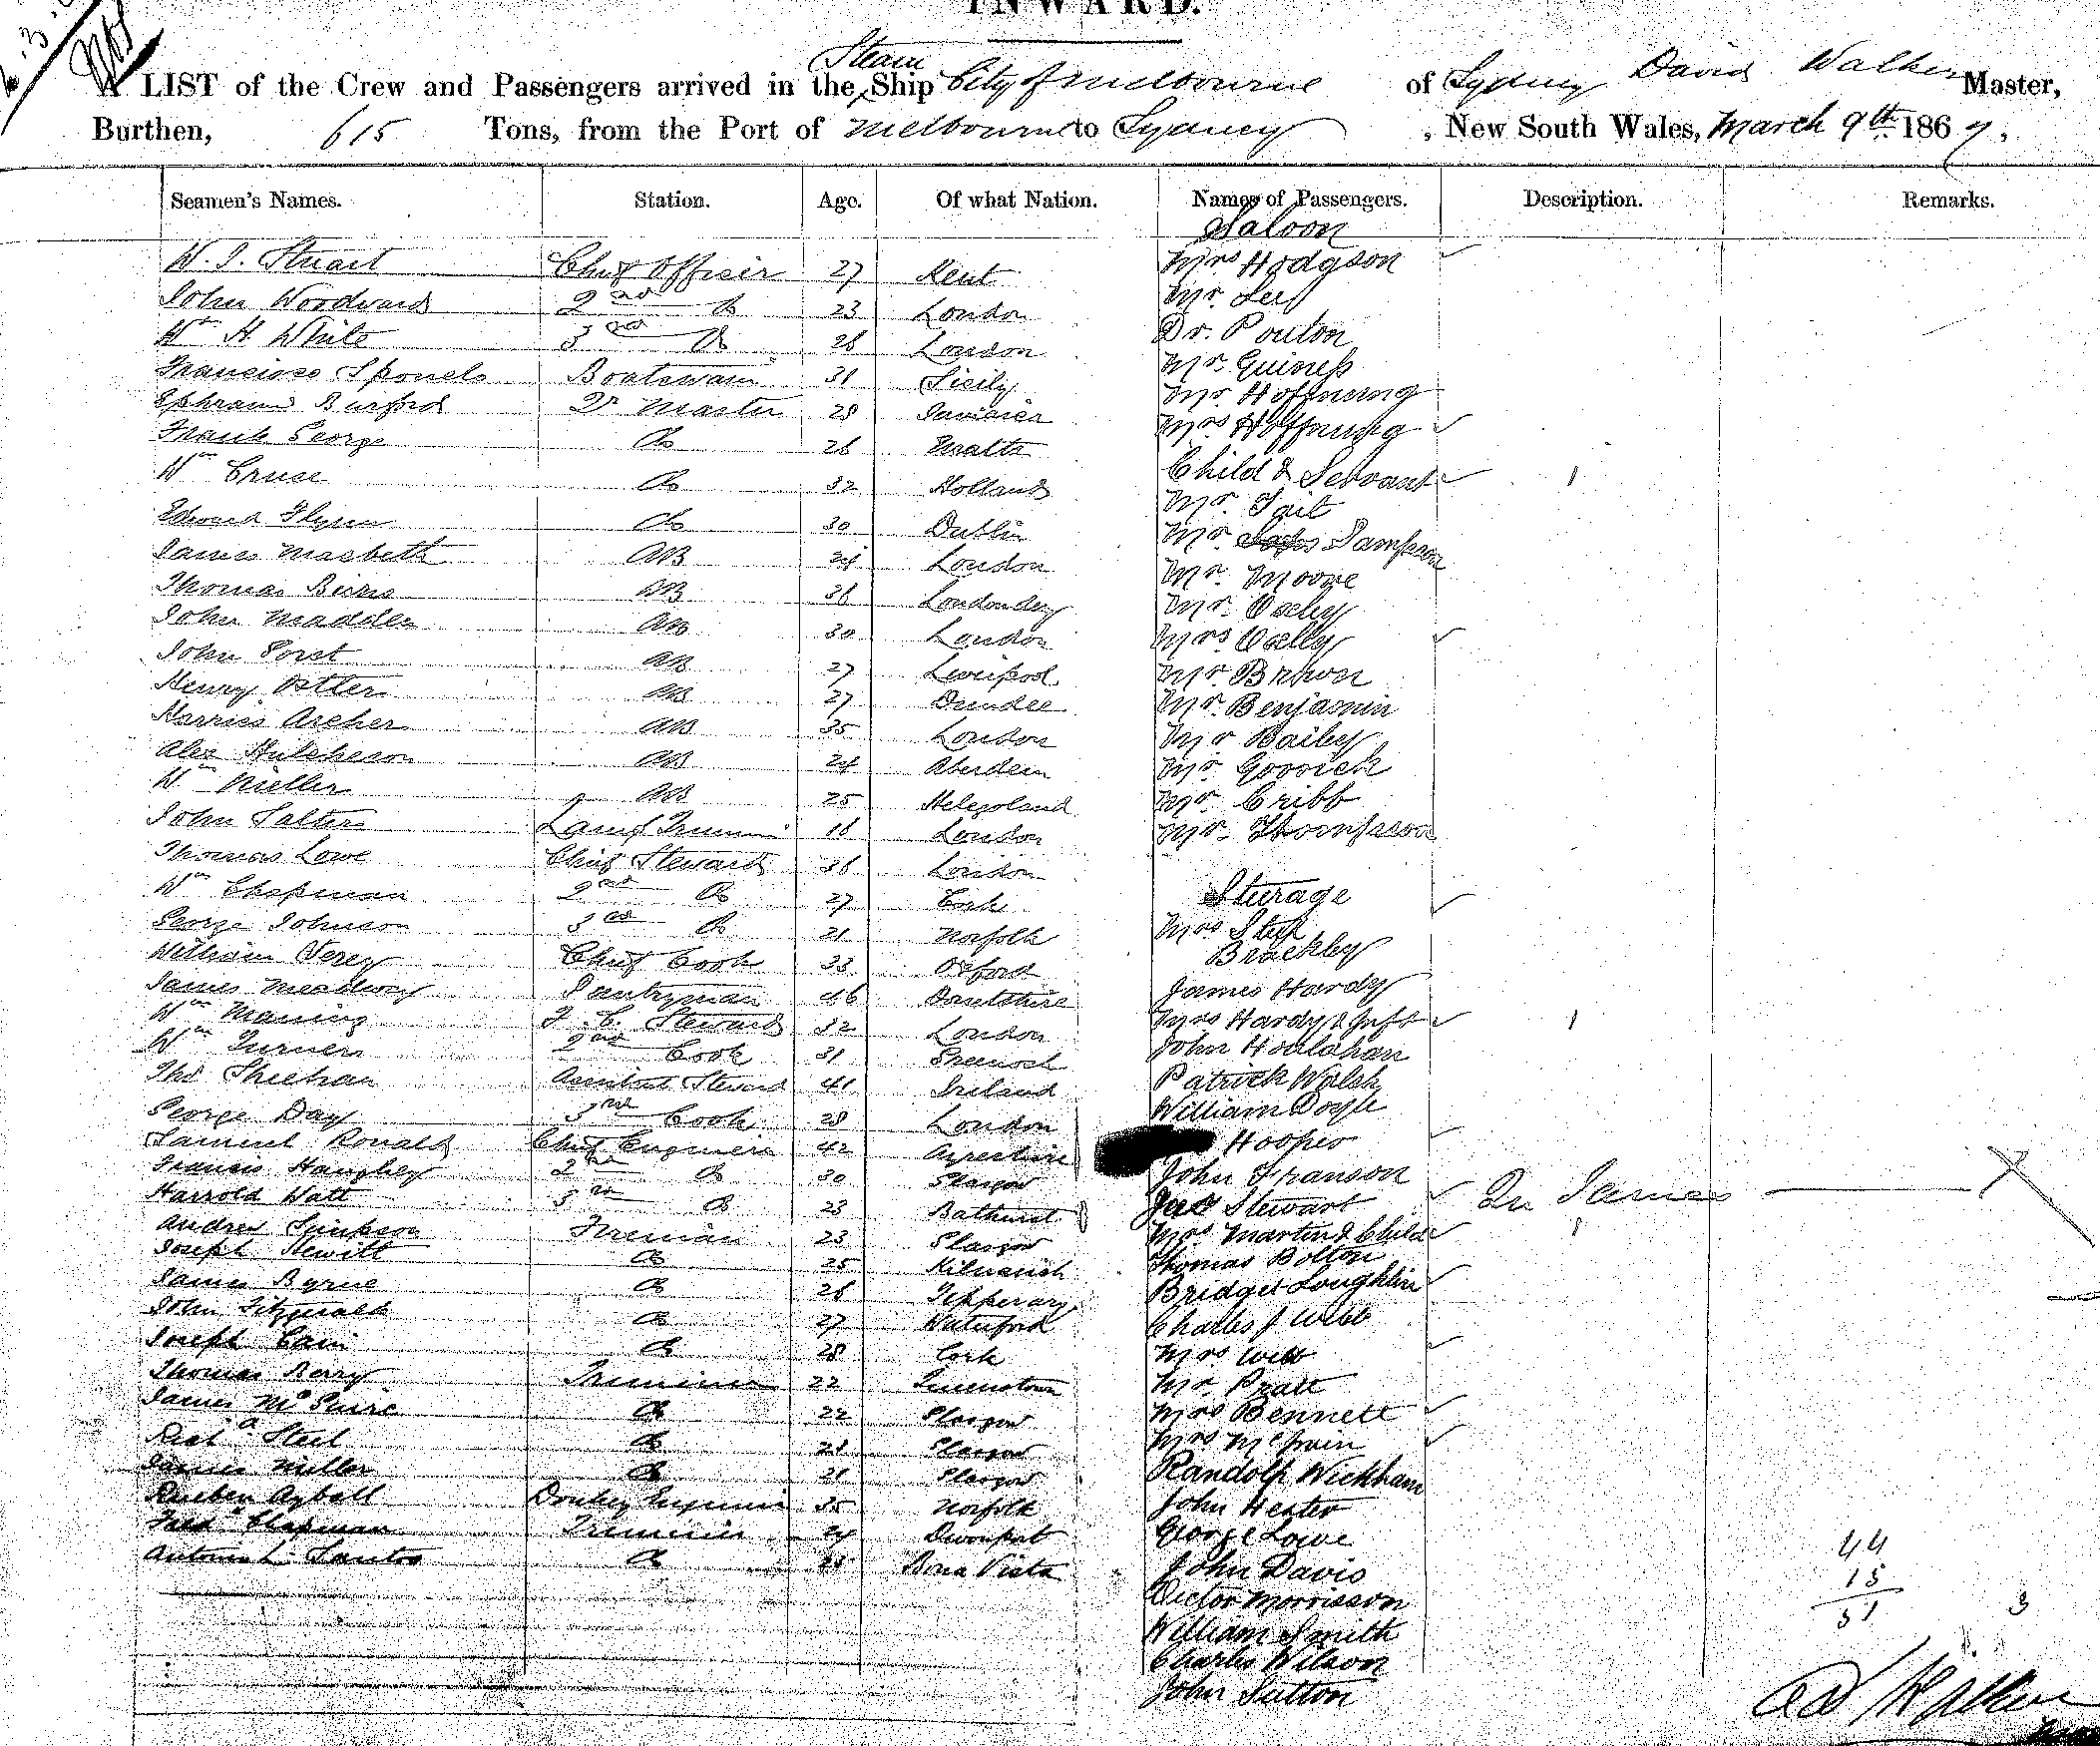 INWARD.
A LIST of the Crew and Passengers arrived in the Steam Ship City of Melbourne of Sydney David Walker Master,
Burthen, 615 Tons, from the Port of Melbourne to Sydney, New South Wales, March 9th 1867,
Seamen's Names. Station. Age. Of what Nation. Names of Passengers. Description. Remarks.
Saloon
W. J. Stuart Chief Officer 27 Kent Mrs Hodgson
John Woodward 2nd Do 23 London Mr.
Wm H. White 3rd Do 26 London Dr. Pouton
Boatswain 31 Sicily Mr. Guiness
Ephraim Burford Qr Master 28 Mr Hoffnung
Frank George Do 26 Malta Mrs Hoffnung
Wm Cruse Do 32 Holland Child & Servant 1
Edward Flynn Do 30 Dublin Mr. Tait
James Macbeth AB 24 London Mr Sampson
Thomas AB 36 Londondery Mr. Moore
John Madden AB 30 London Mr. Oxley
John AB 27 Liverpool Mrs Oxley
Henry AB 27 Dundee Mr. Brown
Harries Archer AB 35 London Mr. Benjamin
Alex Hutcheson AB 24 Aberdeen Mr Bailey
Wm AB 25 Helegoland Mr. Gorrick
John Salter Lamp Trimmer 16 London Mr Cribb
Thomas Lowe Chief Steward 36 London Mr. Thompson
Wm Chapman 2nd Do 27 Cork Sturage
George Johnson 3rd Do 21 Norfolk Mrs
William Verey Chief Cook 33 Oxford Brackley
James Meadway Pantryman 46 James Hardy
Wm Maning F. C. Steward 32 London Mrs Hardy & Inft 1
Wm Turner 2nd Cook 31 Greenock John Houlahan
Thos Sheehan Assistant Steward 41 Ireland Patrick Walsh
George Day 3rd Cook 28 London William Doyle
Samuel Ronald Chief Engineer 42 Ayreshire Hooper
Francis Haughey 2nd Do 30 Glasgow John Franson
Harrold Watt 3rd Do 23 Bathurst Stewart
Andrew Simpson Fireman 23 Glasgow Mrs Martin & Child 1
Joseph Hewitt Do 25 Thomas Bolton
James Byrne Do 26 Tipperary Bridget Loughlin
John Fitzgerald Do 27 Waterford Charles J Webb
Joseph Do 28 Cork Mrs Webb
Thomas Berry Trimmer 22 Queenstown Mr. Pratt
James McGuire Do 22 Glasgow Mrs Bennett
Richd Steel Do 21 Glasgow Mrs
James Miller Do 21 Glasgow Randolph Wickham
Reuben Donkey Engineer 35 Norfolk John Hester
Fredk Chapman Trimmer 24 Devonport George Lowe
Antonio L. Santos Do 28 Bona Vista John Davis
Victor Morrisson
William Smith
Charles Wilson
John Sutton
44
15
3